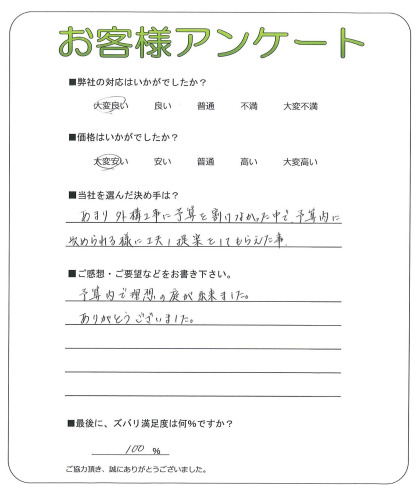 お客様アンケート
■弊社の対応はいかがでしたか？
大変良い 良い 普通 不満 大変不満
■価格はいかがでしたか？
大変安い 安い 普通 高い 大変高い
■当社を選んだ決め手は？
あまり外構工事に予算を割けなかった中で予算内に
収められる様に工夫し提案をしてもらえた事。
■ご感想・ご要望などをお書き下さい。
予算内で理想の庭が出来ました。
ありがとうございました。
■最後に、ズバリ満足度は何％ですか？
100 ％
ご協力頂き、誠にありがとうございました。